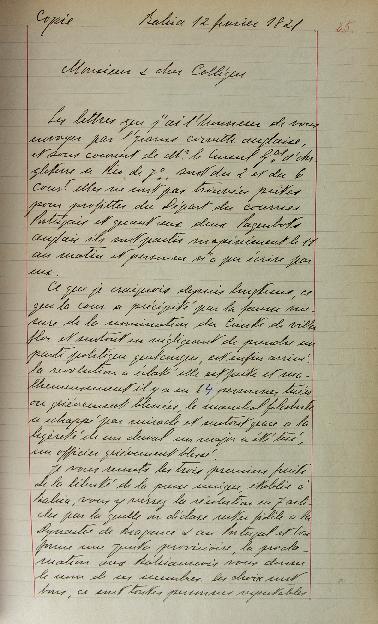 Copie Bahia 12 février 1821 25.
Monsieur & cher Collègue
Les lettres que j'ai l'honneur de vous
envoyer par l' corvette anglaise,
et sous couvert de Mr. le Consul Gal. d'An
gleterre à Rio de Jo. sont du 2 et du 6
Cour! elles ne sont pas trouvées prêtes
pour profiter du départ du courrier
Portugais et quant aux deux Paquebots
anglais ils sont partis inopinément le 11
au matin et personne n'a pu écrire par
eux.
Ce que je craignois depuis longtems, ce
que la cour a précipité par la fausse me
sure de la nomination du Comte de Villa
flor et surtout en négligeant de prendre un
parti politique quelconque, est enfin arrivé.
la révolution a éclaté elle est faite et mal
heureusement il y a eu 14 personnes tuées
ou grièvement blessées, le maréchal Felisberto
a échappé par miracle et surtout grace à la
légèreté de son cheval un major a été tué,
un officier grièvement blessé.
Je vous remets les trois premiers fruits
de la liberté de la presse unique établie à
Bahia, vous y verrez la résolution en 7 arti
cles par laquelle on déclare rester fidèle à la
Dynastie de Bragance & au Portugal et l'on
forme une junte provisoire, la procla
mation aux Bahianois vous donne
le nom de ses membres. les choix sont
bons, ce sont toutes personnes respectables